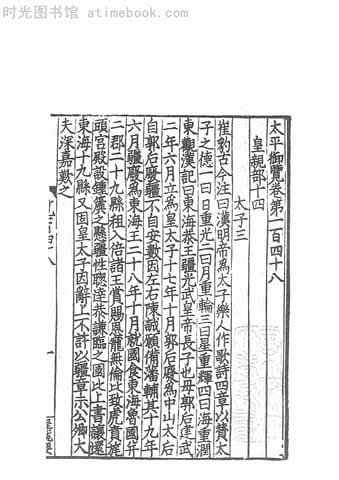 时光图书馆 www.atimebook.com
太平御覽卷第一百四十八
皇親部十四
太子三
崔豹古今注曰漢明帝爲太子樂人作歌詩四章以贊太
子之德一曰日重光二曰月重輪三曰星重輝四曰海重潤
東觀漢記曰東海恭王彊光武皇帝長子也母郭后建武
二年六月立爲皇太子十七年十月郭后廢爲中山太后
自郭后廢彊不自安數因左右陳誠願備藩輔其十九年
六月彊廢爲東海王二十八年十月就國食東海魯國并
二郡二十九縣租入倍諸王賞賜恩寵無倫比致虎賁旄
頭宮殿設鍾虡之懸彊性聰達恭謙臨之國上書讓還
東海十九縣又因皇太子固辭上不許以彊章示公卿大
夫深嘉歎之